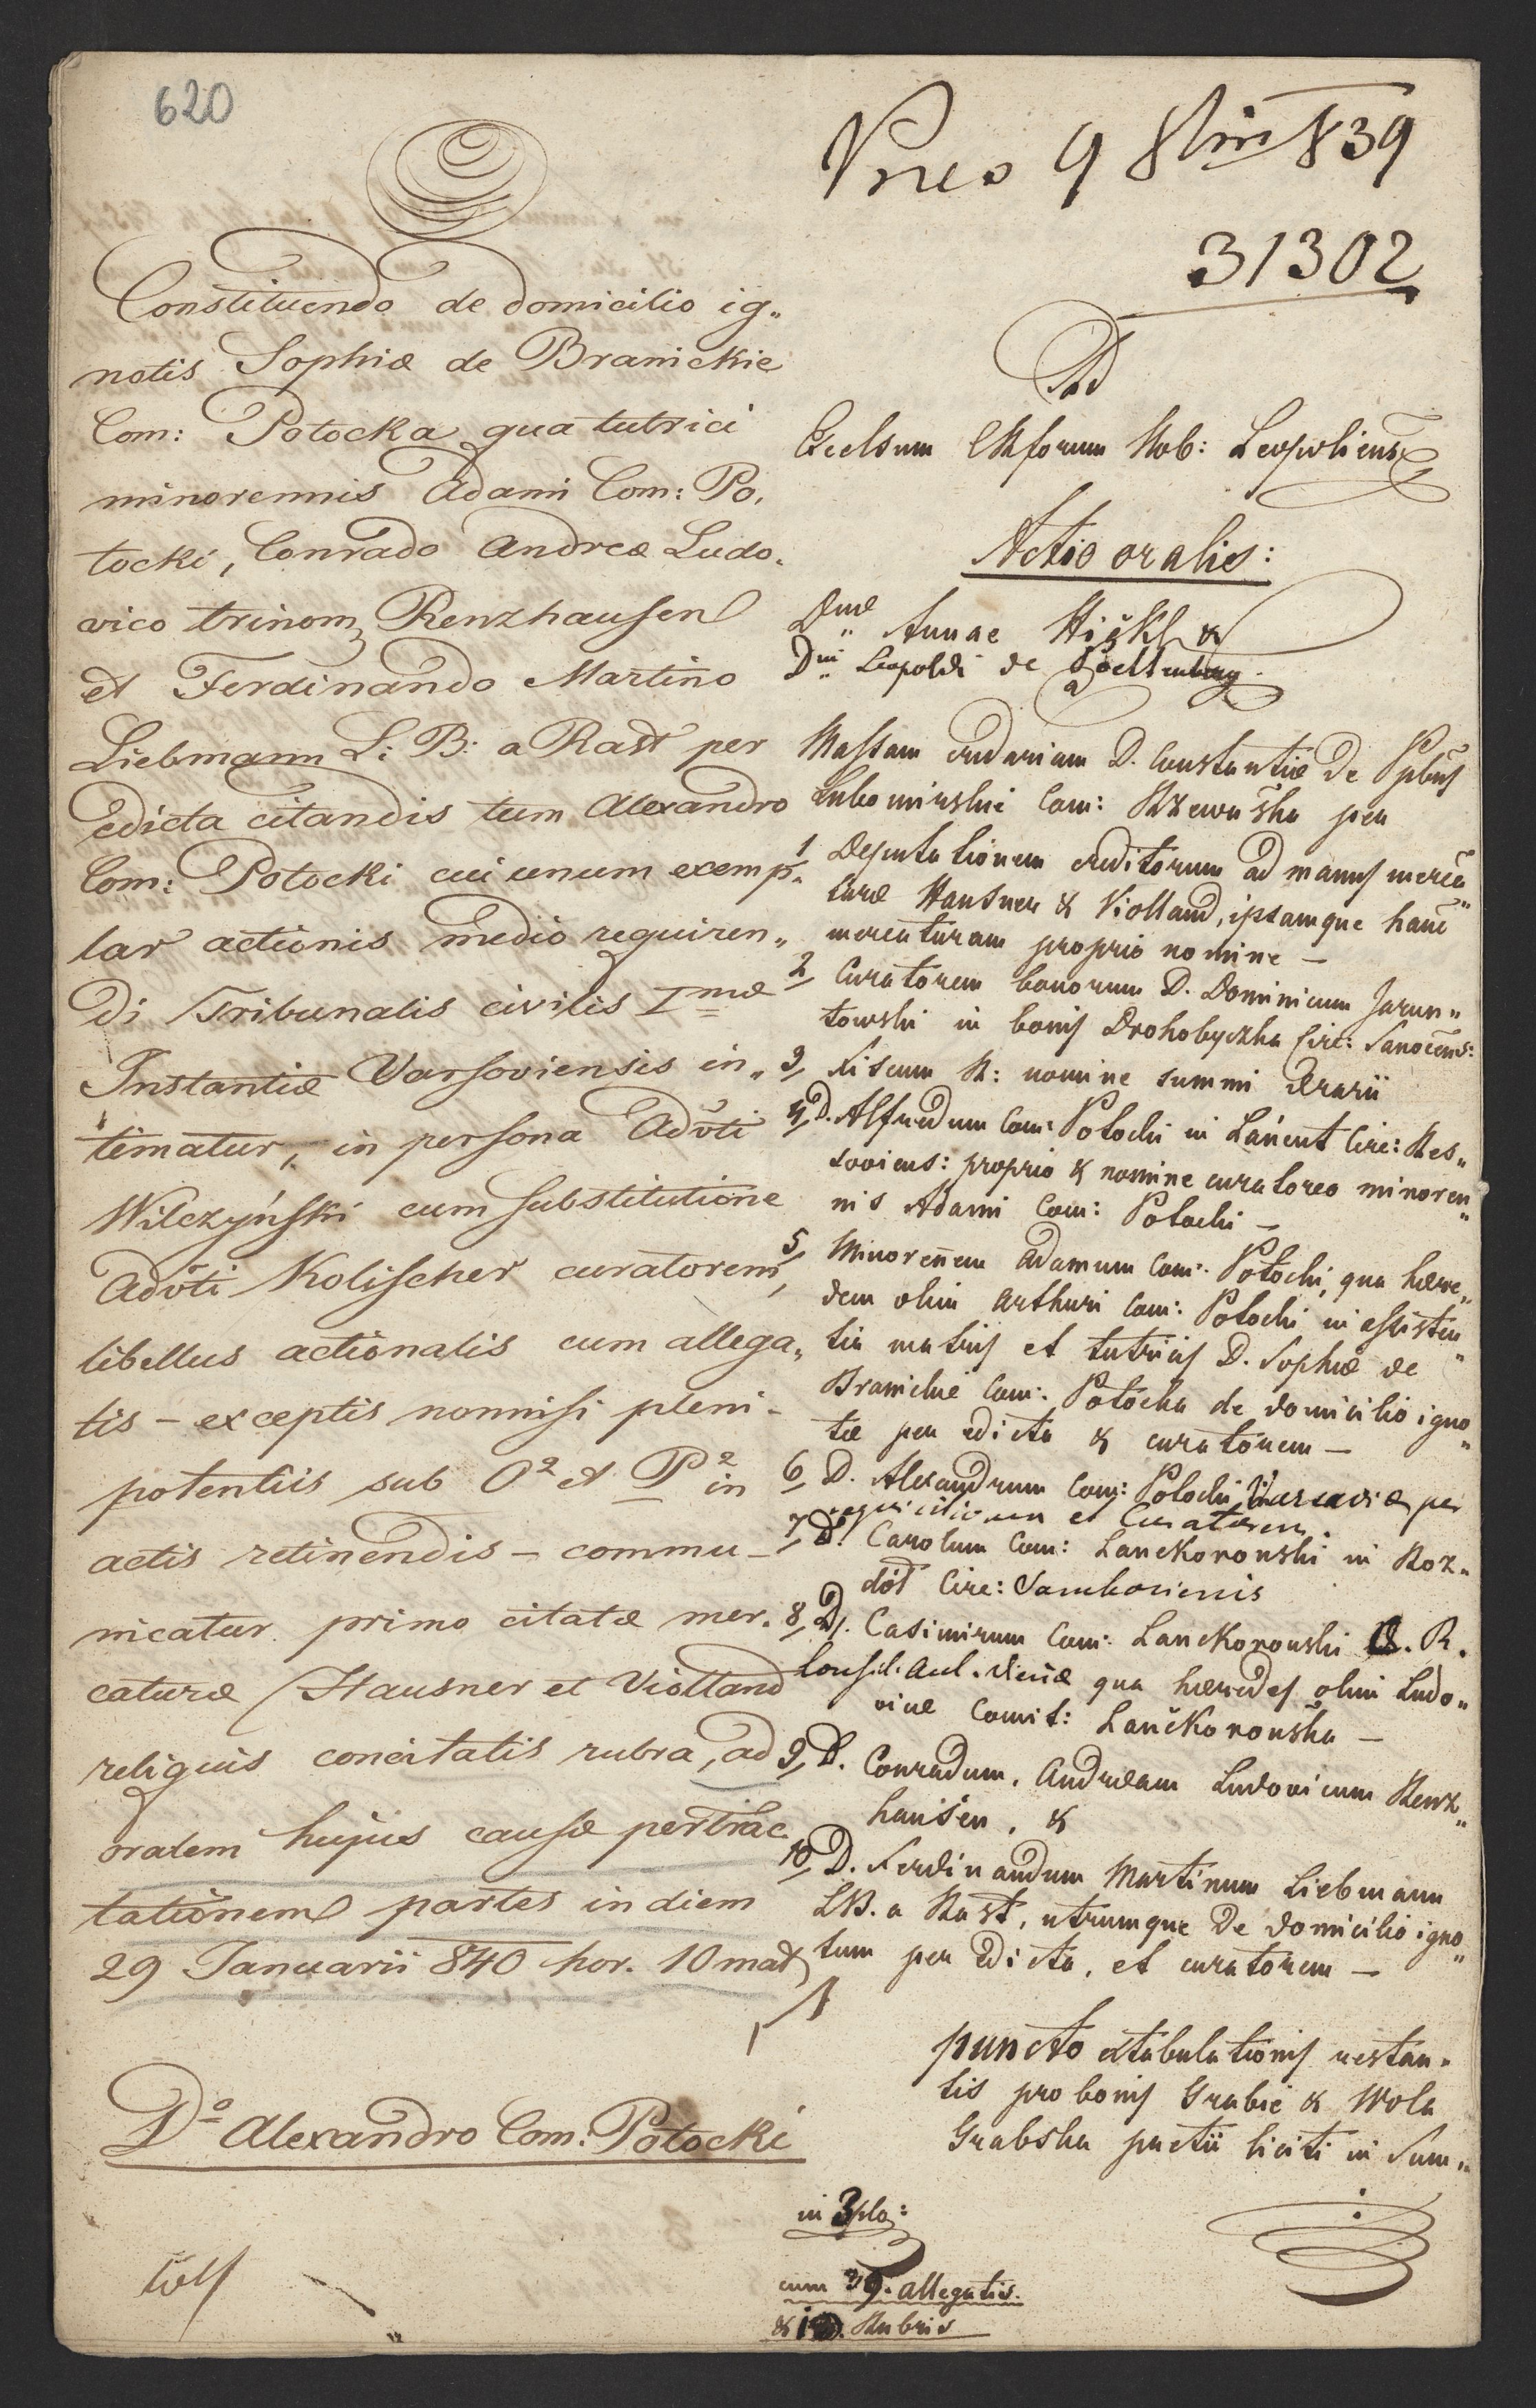 620
9 839
31302
Constituendo de domicilio ig„
notis Sophiæ de Branickie
Com: Potocka qua tutrici
minorennis Adami Com: Po„
tocki, Conrado Andreæ Ludo„
vico trinom Renzhausen
et Ferdinando Martino
Liebmann L: B: a Rast per
edicta citandis tum Alexandro
Com: Potocki cui unum exemp„
lar actionis medio requiren„
di Tribunalis civilis Imæ
Instantiæ Varsoviensis in„
timatur, in persona Advti
Wilczyński cum substitutione
Advti Kolischer curatorem,
libellus actionalis cum allega„
tis – exceptis nonnisi pleni-
potentiis sub O² et P² in
actis retinendis – commu-
nicatur primo citatæ mer„
caturæ Hausner et Violland
reliquis concitatis rubra, ad
oralem hujus causæ pertrac
tationem partes in diem
29 Januarii 840 hor. 10 mat
Do Alexandro Com: Potocki
Ad
Excelsum CRforum Nob: Leopoliense
Actio oralis:
Dnæ Annae &
Dni Leopoldi de
Massam cridariam D. Constantiæ de Ppbus
Lubomirskie Com: Rzewuska per
1, Deputationem creditorum ad manus merca„
turæ Hausner & Violland, ipsamque hanc
mercaturam proprio nomine –
2, Curatorem bonorum D. Dominicum Jarun„
towski in bonis Drohobyczka Circ: Sanocens:
3, Fiscum R: nomine summi Ærarii
4, D. Alfredum Com: Potocki in Łańcut Circ: Res„
soviens: proprio & nomine curatoreo minoren„
nis Adami Com: Potocki –
5, Minorenem Adamum Com: Potocki, qua hære„
dem olim Arthuri Com: Potocki in assisten„
tia matris et tutricis D. Sophiæ de
Branickie Com: Potocka de domicilio igno„
tæ per edicta & curatorem –
6, D. Alexandrum Com: Potocki Varsaviæ per
requisitionem et Curatorem.
7, D. Carolum Com: Lanckoronski in Roz„
dół Circ: Samboriensis
8, D. Casimirum Com: Lanckoronski C. R.
Consil: Aul. Vienæ qua hæredes olim Ludo„
vicæ Comit: Lanckoronska –
9, D. Conradum, Andream Ludovicum Renz„
hausen, &
10, D. Ferdinandum Martinum Liebmann
LB. a Rast, utrumque de domicilio igno„
tum per edicta, et curatorem –
puncto extabulationis restan„
tis pro bonis Grabie & Wola
Grabska pretii liciti in Sum„
in 3plo:
cum 39. allegatis.
& Rubris